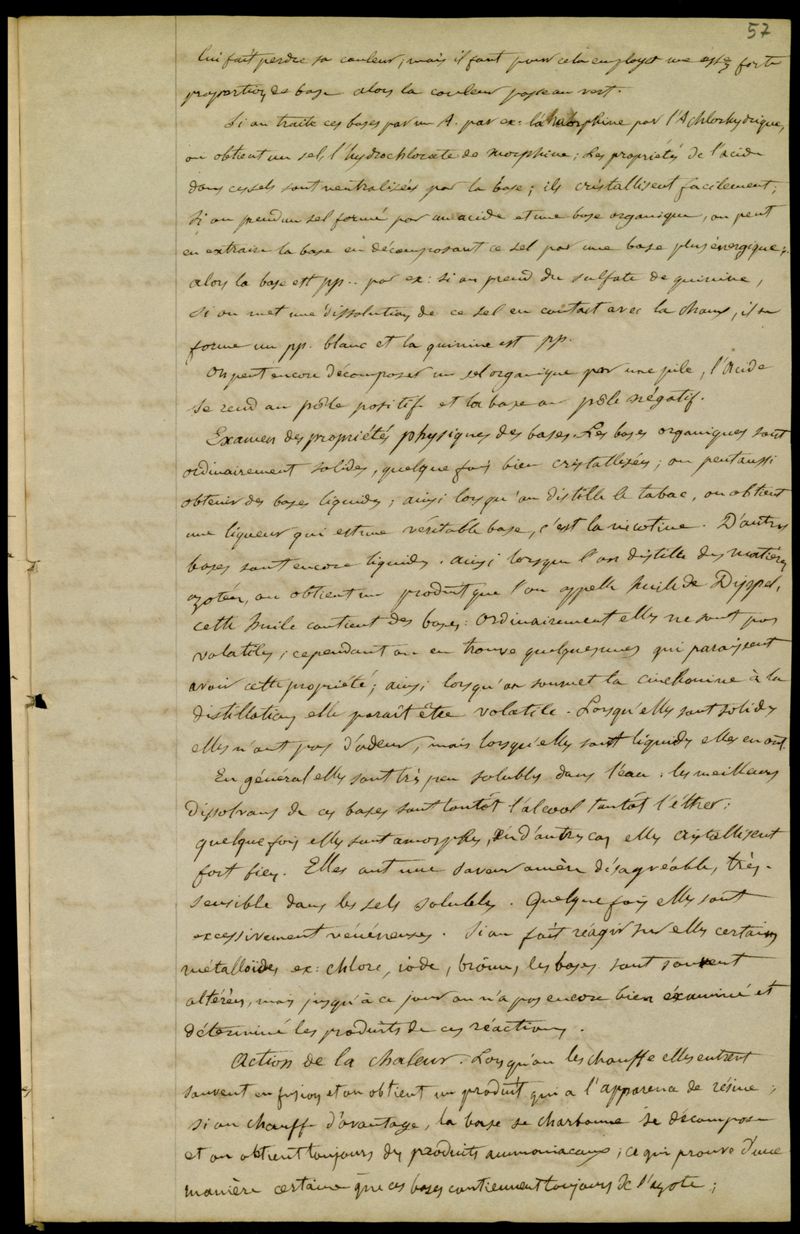 57
lui fait perdre sa couleur; mais il faut pour cela employer une assez forte
proportion de base alors la couleur passe au vert.
Si on traite ces bases par un A. par ex: la morphine par l'A chlorhydrique,
on obtient un sel, l'hydrochlorate de morphine; Les propriétés de l'acide
dans ces sels sont neutralisées par la base; ils cristallisent facilement;
si on prend un sel formé par un acide et une base organique, on peut
en extraire la base en décomposant ce sel par une base plus énergique;
alors la base est pp.. par ex: si on prend du sulfate de quinine,
si on met une dissolution de ce sel en contact avec la chaux, il se
forme un pp. blanc et la quinine est pp.
On peut encore décomposer un sel organique par une pile, l'acide
se rend au pôle positif et la base au pôle négatif.
Examen des propriétés physiques des bases. Les bases organiques sont
ordinairement solides, quelque fois bien cristallisées; on peut aussi
obtenir des bases liquides; ainsi lorsqu'on distille le tabac, on obtient
une liqueur qui est une véritable base, c'est la nicotine. D'autres
bases sont encore liquides. ainsi lorsque l'on distille des matières
azotées, on obtient un produit que l'on appelle huile de Dippel,
cette huile contient des bases: ordinairement elles ne sont pas
volatiles; cependant on en trouve quelques unes qui paraissent
avoir cette propriété; ainsi lorsqu'on soumet la cinchonine à la
distillation elle parait être volatile. Lorsqu'elles sont solides
elles n'ont pas d'odeur, mais lorsqu'elles sont liquides elles en ont.
En général elles sont très peu solubles dans l'eau: les meilleurs
dissolvans de ces bases sont tantôt l'alcool tantôt l'éther;
quelque fois elles sont amorphes, en d'autres cas elles cristallisent
fort bien. Elles ont une saveur amère désagréable, très-
sensible dans les sels solubles. Quelque fois elles sont
excessivement vénéneuses. Si on fait réagir sur elles certains
métalloïdes ex: chlore, iode, brôme, les bases sont souvent
altérées, mais jusqu'à ce jour on n'a pas encore bien examiné et
déterminé les produits de ces réactions.
Action de la chaleur. Lorsqu'on les chauffe elles entrent
souvent en fusion et on obtient un produit qui a l'apparence de résine;
si on chauffe d'avantage, la base se charbonne se décompose
et on obtient toujours des produits ammoniacaux; ce qui prouve d'une
manière certaine que ces bases contiennent toujours de l'azote;